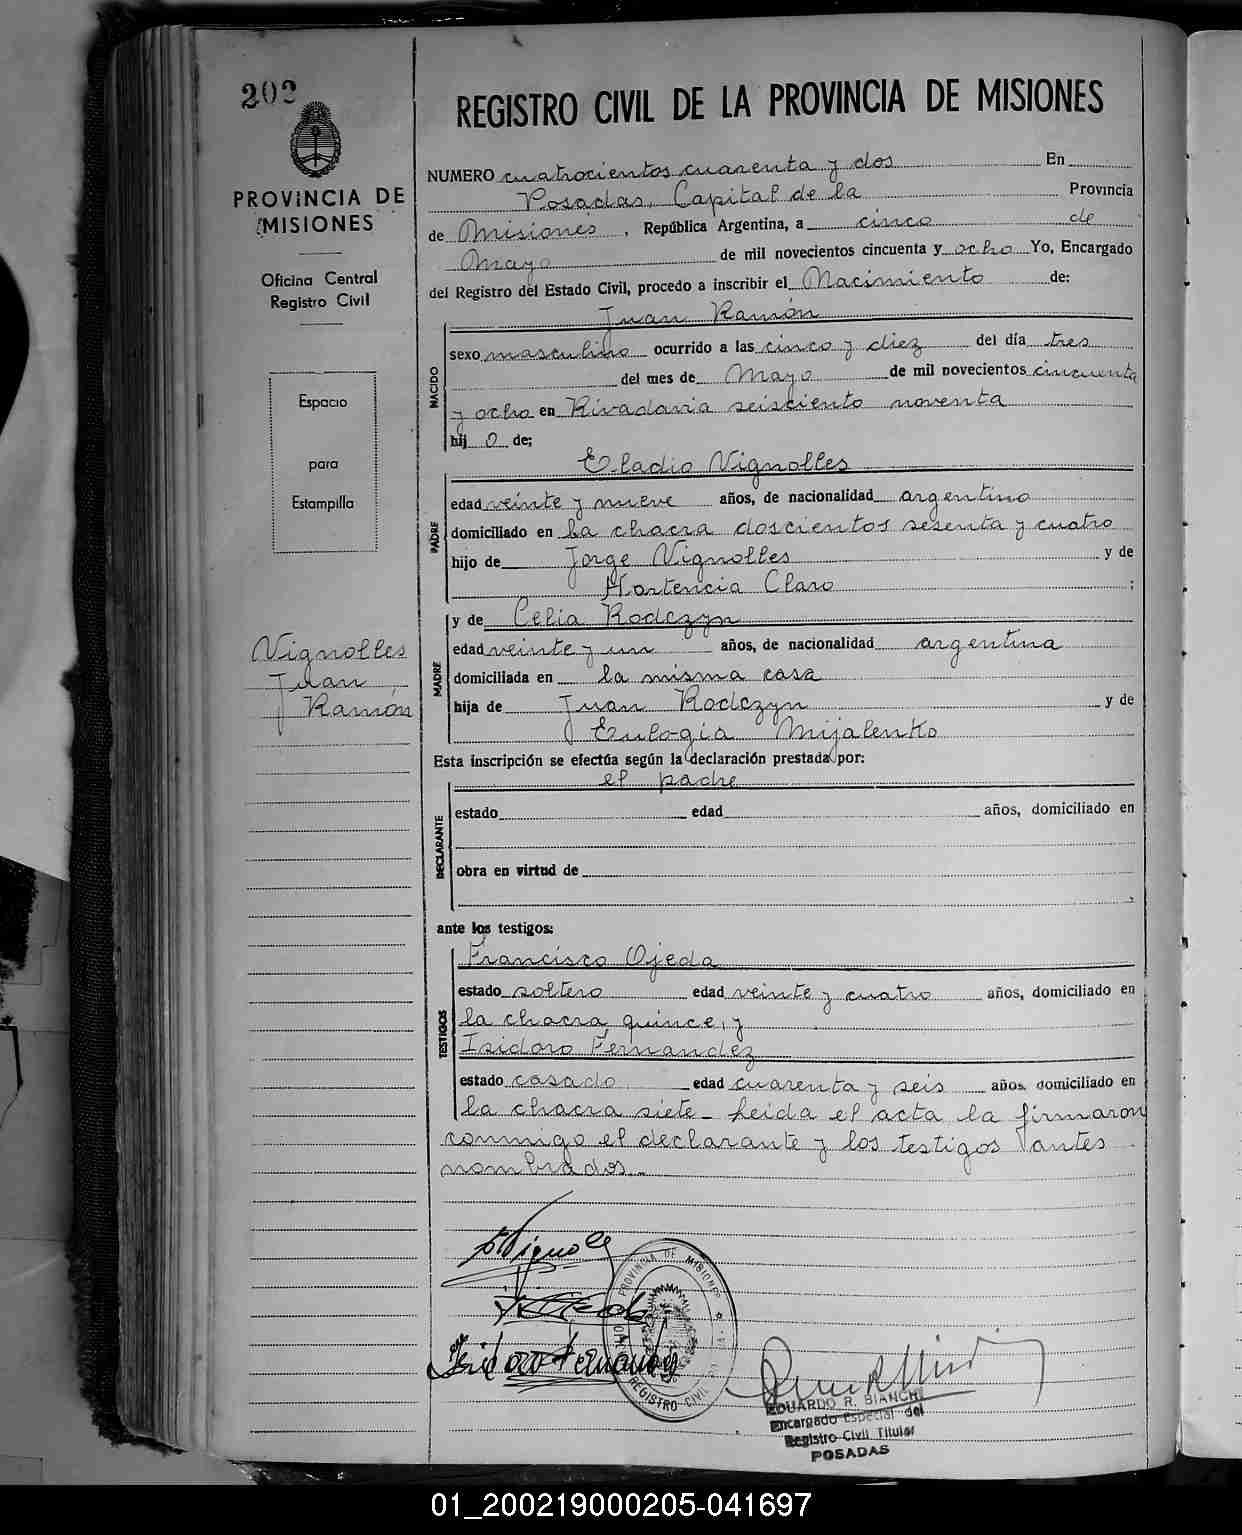 202
PROVINCIA DE
MISIONES
Oficina Central
Registro Civil
Espacio
para
Estampilla
Vignolles
Juan
Ramón
REGISTRO CIVIL DE LA PROVINCIA DE MISIONES
NUMERO cuatrocientos cuarenta y dos En
Posadas, Capital de la Provincia
de Misiones, República Argentina, a cinco de
Mayo de mil novecientos cincuenta y ocho Yo, Encargado
del Registro del Estado Civil, procedo a inscribir el Nacimiento de:
Juan Ramón
NACIDO
sexo masculino ocurrido a las cinco y diez del día tres
del mes de Mayo de mil novecientos cincuenta
y ocho en Rivadavia seisciento noventa
hijo de;
Eladio Vignolles
PADRE
edad veinte y nueve años, de nacionalidad argentino
domiciliado en la chacra doscientos sesenta y cuatro
hijo de Jorge Vignolles y de
Hortencia Claro ;
y de Celia Rodczyn
MADRE
edad veinte y un años, de nacionalidad argentina
domiciliada en la misma casa
hija de Juan Rodczyn y de
Eulogia Mijalenko
Esta inscripción se efectúa según la declaración prestada por:
el padre
DECLARANTE
estado edad años, domiciliado en
obra en virtud de
ante los testigos:
Francisco Ojeda
TESTIGOS
estado soltero edad veinte y cuatro años, domiciliado en
la chacra quince, y
Isidoro Fernandez
estado casado edad cuarenta y seis años, domiciliado en
la chacra siete - Leida el acta la firmaron
conmigo el declarante y los testigos antes
nombrados.-
E Vignolles
Isidoro Fernandez
PROVINCIA DE MISIONES
REGISTRO CIVIL
EDUARDO R. BIANCHI
Encargado Especial del
Registro Civil Titular
POSADAS
01_200219000205-041697